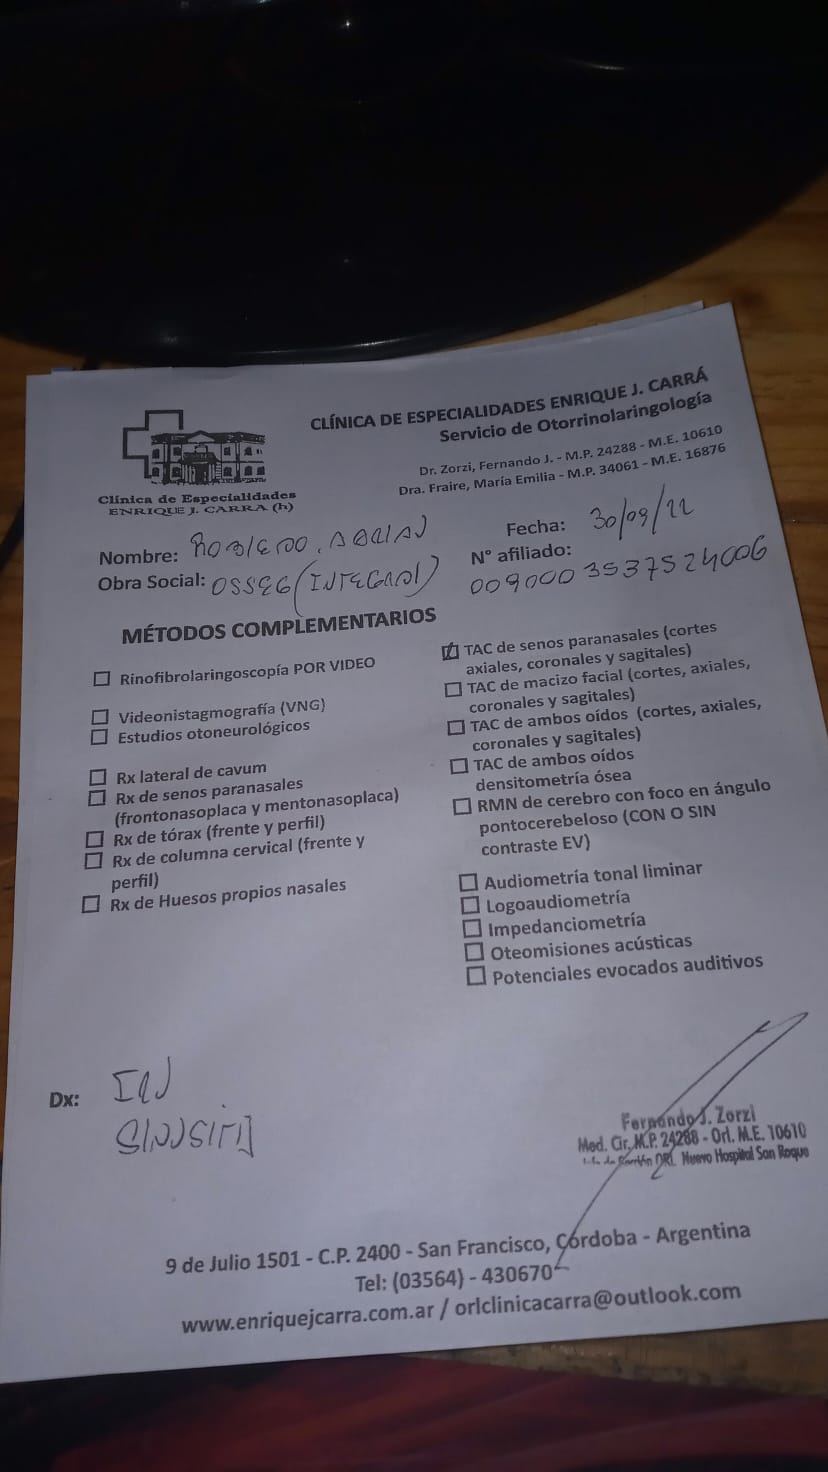 CLÍNICA DE ESPECIALIDADES ENRIQUE J. CARRÁ
Servicio de Otorrinolaringología
Dr. Zorzi, Fernando J. - M.P. 24288 - M.E. 10610
Dra. Fraire, María Emilia - M.P. 34061 - M.E. 16876
Clínica de Especialidades
ENRIQUE J. CARRA (h)
Nombre: ROBLEDO, ADRIAN
Fecha: 30/09/22
Obra Social: OSSEG (INTEGRAL)
N° afiliado: 0090003537524006
MÉTODOS COMPLEMENTARIOS
Rinofibrolaringoscopía POR VIDEO
Videonistagmografía (VNG)
Estudios otoneurológicos
Rx lateral de cavum
Rx de senos paranasales
(frontonasoplaca y mentonasoplaca)
Rx de tórax (frente y perfil)
Rx de columna cervical (frente y
perfil)
Rx de Huesos propios nasales
TAC de senos paranasales (cortes
axiales, coronales y sagitales)
TAC de macizo facial (cortes, axiales,
coronales y sagitales)
TAC de ambos oídos (cortes, axiales,
coronales y sagitales)
TAC de ambos oídos
densitometría ósea
RMN de cerebro con foco en ángulo
pontocerebeloso (CON O SIN
contraste EV)
Audiometría tonal liminar
Logoaudiometría
Impedanciometría
Oteomisiones acústicas
Potenciales evocados auditivos
Dx:
Fernando J. Zorzi
Med. Cir. M.P. 24288 - Orl. M.E. 10610
ORL Nuevo Hospital San Roque
9 de Julio 1501 - C.P. 2400 - San Francisco, Córdoba - Argentina
Tel: (03564) - 430670
www.enriquejcarra.com.ar / orlclinicacarra@outlook.com